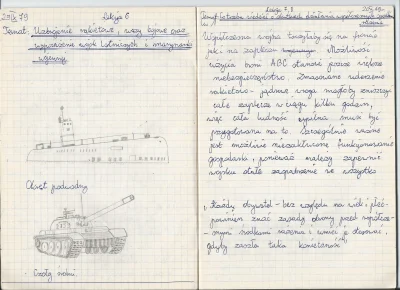 Lekcja 6
Temat: Uzbrojenie rakietowe, wozy bojowe oraz
wyposażenie wojsk lotniczych i marynarki
wojennej.
Okręt podwodny
Czołg średni
Lekcja 7, 8
Współczesna wojna toczyłaby się na froncie
jak i na zapleczu. Możliwość
użycia broni ABC stanowi jeszcze większe
niebezpieczeństwo. Zmasowane uderzenie
rakietowo - jądrowe wroga mogłoby zniszczyć
całe zaplecze w ciągu kilku godzin,
więc cała ludność cywilna musi być
przygotowana na to. Szczególnie ważne
jest możliwie niezakłócone funkcjonowanie
gospodarki, ponieważ należy zapewnić
wojsku stałe zaopatrzenie we wszystko
„Każdy obywatel - bez względu na wiek i płeć -
powinien znać zasady obrony przed współcze-
snymi środkami rażenia i umieć je stosować,
gdyby zaszła taka konieczność"